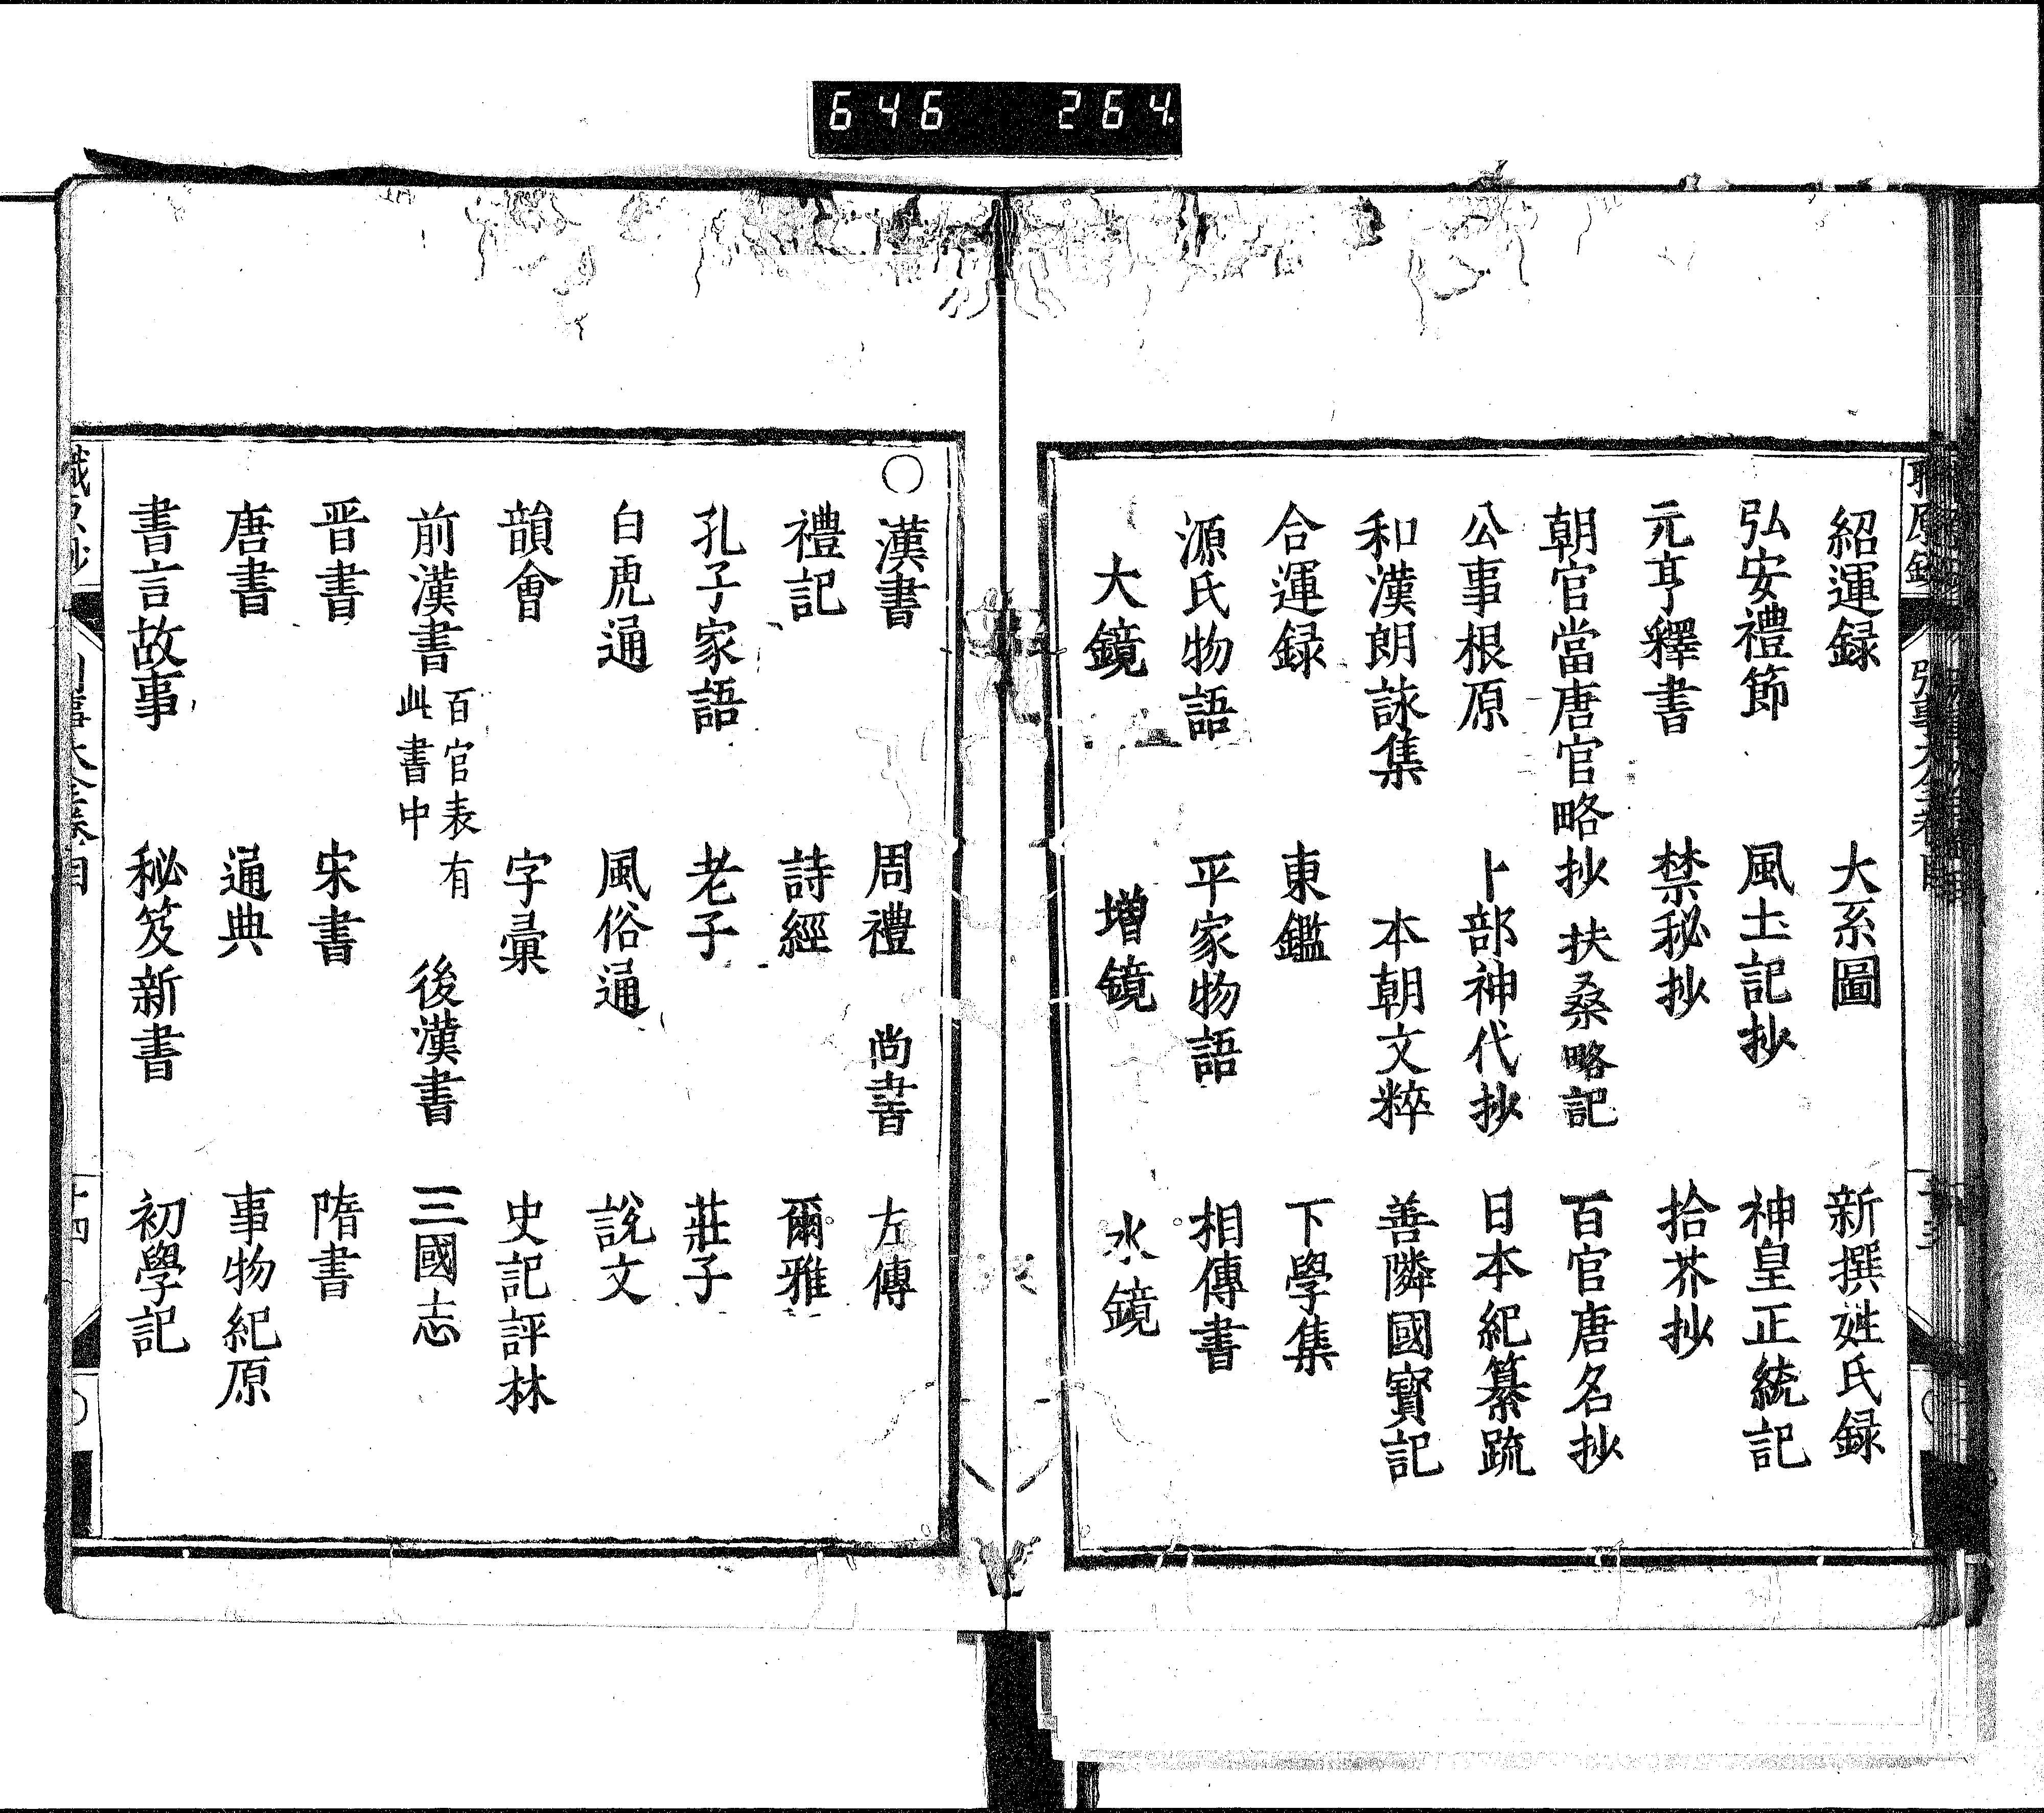 646 264
紹運録 大系圖 新撰姓氏録
弘安禮節 風土記抄 神皇正統記
元亨釋書 禁秘抄 拾芥抄
朝官當唐官略抄 扶桑略記 百官唐名抄
公事根原 卜部神代抄 日本紀纂䟽
和漢朗詠集 本朝文粹 善隣國寶記
合運録 東鑑 下學集
源氏物語 平家物語 相傳書
大鏡 増鏡 水鏡
○漢書 周禮 尚書 左傳
禮記 詩經 爾雅
孔子家語 老子 莊子
白虎通 風俗通 說文
韻會 字彙 史記評林
前漢書 百官表有此書中 後漢書 三國志
晋書 宋書 隋書
唐書 通典 事物紀原
書言故事 秘笈新書 初學記